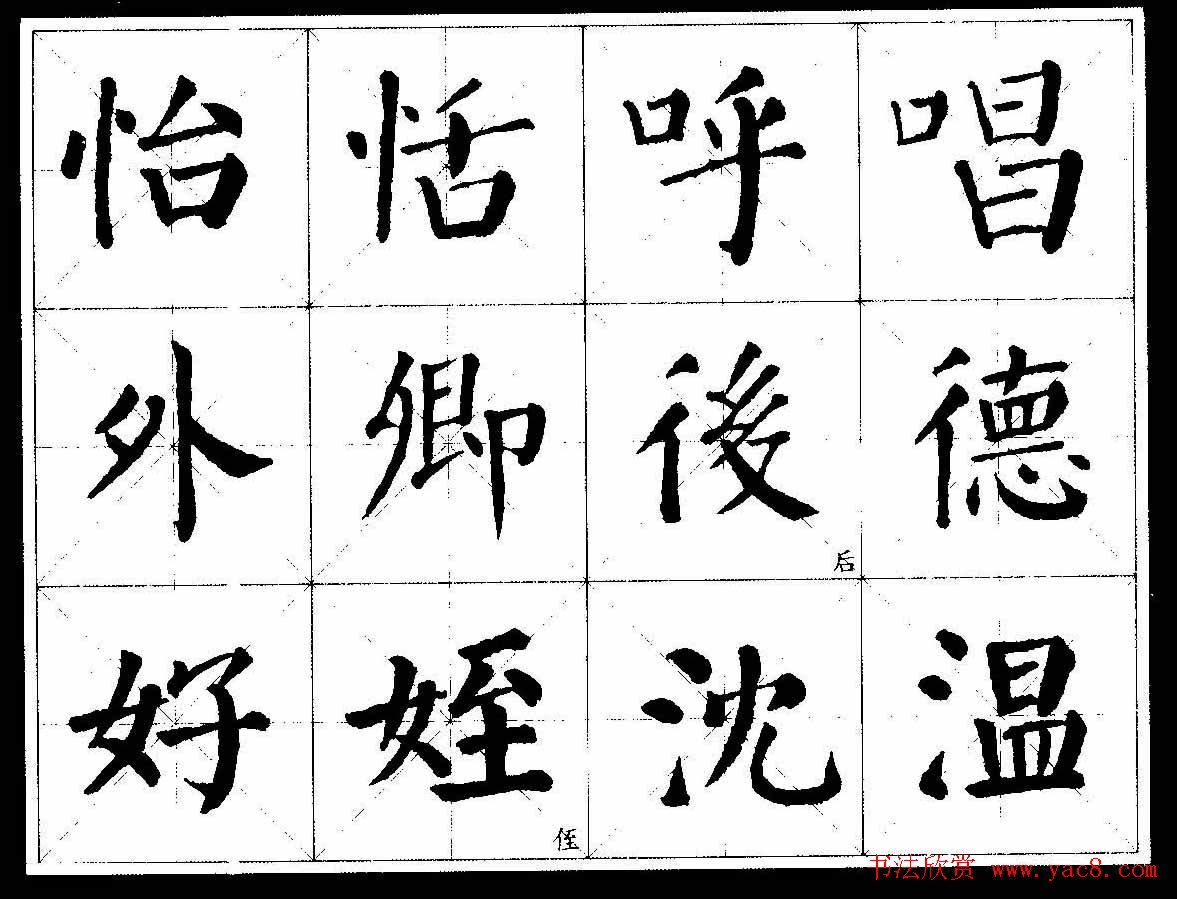 怡 恬 呼 唱
外 卿 後 德
后
好 姪 沈 温
侄
书法欣赏 www.yac8.com